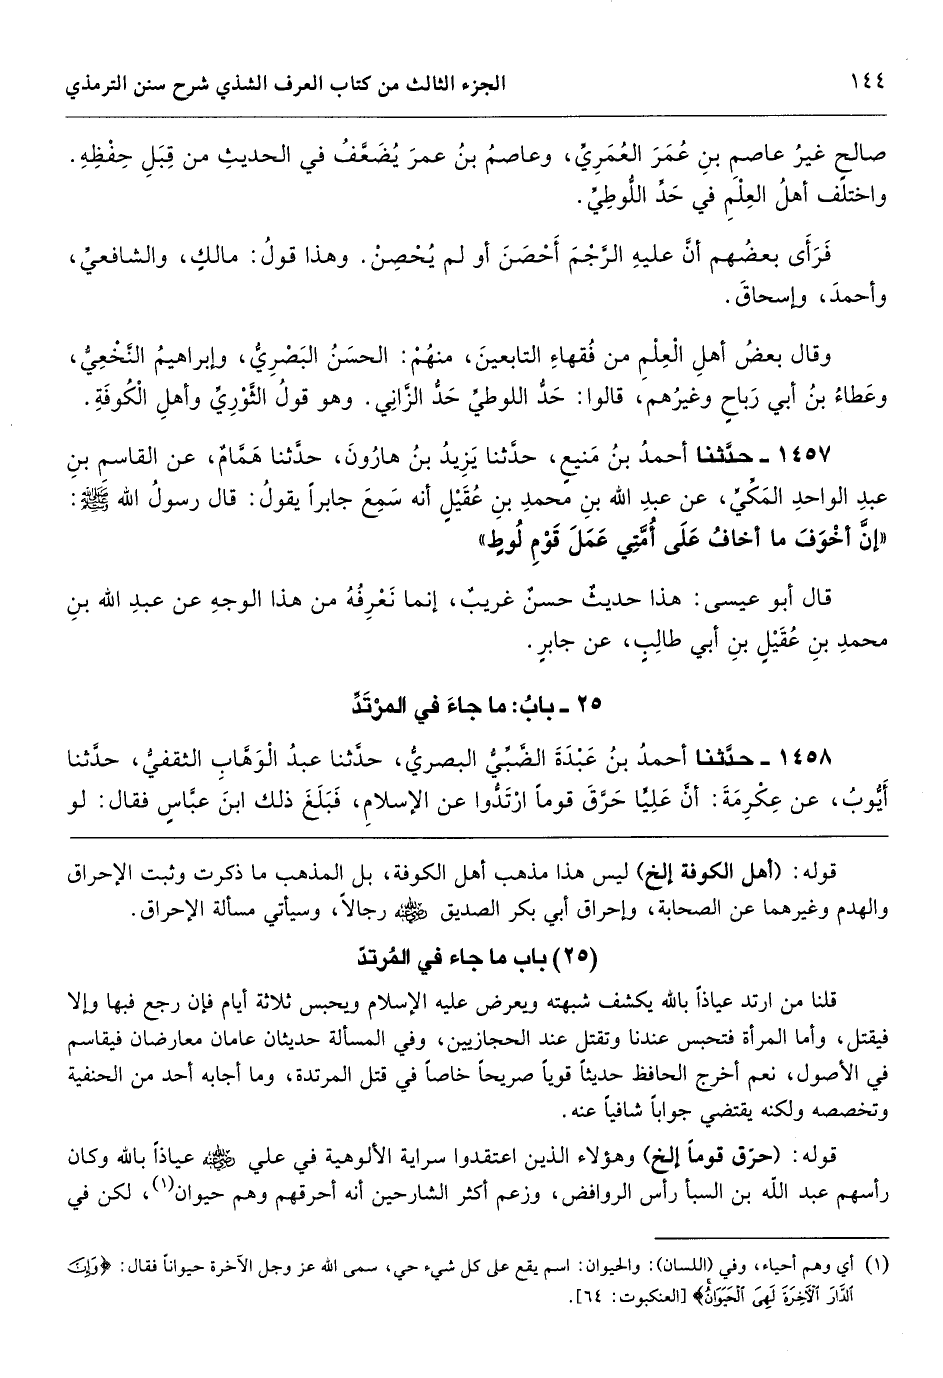 ١٤٤
الجزء الثالث من كتاب العرف الشذي شرح سنن الترمذي
صالحٍ غيرُ عاصمِ بنِ عُمَرَ العُمَرِيِّ، وعاصمُ بنُ عمرَ يُضَعَّفُ في الحديثِ من قِبَلِ حِفْظِهِ.
واختلَف أهلُ العِلْمِ في حَدِّ اللُّوطِيِّ.
فَرَأَى بعضُهم أنَّ عليهِ الرَّجْمَ أَحْصَنَ أو لم يُحْصِنْ. وهذا قولُ: مالكٍ، والشافعيِّ،
وأحمدَ، وإسحاقَ.
وقال بعضُ أهلِ الْعِلْمِ من فُقهاءِ التابعينَ، منهُمْ: الحسَنُ البَصْرِيُّ، وإبراهيمُ النَّخْعِيُّ،
وعَطاءُ بنُ أبي رَباحٍ وغيرُهم، قالوا: حَدُّ اللوطيِّ حَدُّ الزَّاني. وهو قولُ الثَّوْرِيِّ وأهلِ الْكُوفَةِ.
١٤٥٧ ـ حدَّثنا أحمدُ بنُ مَنيعٍ، حدَّثنا يَزيدُ بنُ هارُونَ، حدَّثنا هَمَّامٌ، عن القاسمِ بنِ
عبدِ الواحدِ المَكِّيِّ، عن عبدِ الله بنِ محمدِ بنِ عُقَيْلٍ أنه سَمِعَ جابراً يقولُ: قال رسولُ الله ﷺ:
«إنَّ أخْوَفَ ما أخافُ عَلَى أُمَّتِي عَمَلَ قَوْمِ لُوطٍ»
قال أبو عيسى: هذا حديثٌ حسنٌ غريبٌ، إنما نَعْرِفُهُ من هذا الوجهِ عن عبدِ الله بنِ
محمدِ بنِ عُقَيْلِ بنِ أبي طالِبٍ، عن جابرٍ.
٢٥ ـ بابُ: ما جاءَ في المرْتَدِّ
١٤٥٨ ـ حدَّثنا أحمدُ بنُ عَبْدَةَ الضَّبِّيُّ البصريُّ، حدَّثنا عبدُ الْوَهَّابِ الثقفيُّ، حدَّثنا
أَيُّوبُ، عن عِكْرِمَةَ: أنَّ عَلِيًّا حَرَّقَ قوماً ارْتَدُّوا عن الإسلامِ، فَبَلَغَ ذلك ابنَ عبَّاسٍ فقال: لو
قوله: (أهل الكوفة إلخ) ليس هذا مذهب أهل الكوفة، بل المذهب ما ذكرت وثبت الإحراق
والهدم وغيرهما عن الصحابة، وإحراق أبي بكر الصديق رضي الله عنه رجالاً، وسيأتي مسألة الإحراق.
(٢٥) باب ما جاء في المُرتدّ
قلنا من ارتد عياذاً بالله يكشف شبهته ويعرض عليه الإسلام ويحبس ثلاثة أيام فإن رجع فبها وإلا
فيقتل، وأما المرأة فتحبس عندنا وتقتل عند الحجازيين، وفي المسألة حديثان عامان معارضان فيقاسم
في الأصول، نعم أخرج الحافظ حديثاً قوياً صريحاً خاصاً في قتل المرتدة، وما أجابه أحد من الحنفية
وتخصصه ولكنه يقتضي جواباً شافياً عنه.
قوله: (حرّق قوماً إلخ) وهؤلاء الذين اعتقدوا سراية الألوهية في علي رضي الله عنه عياذاً بالله وكان
رأسهم عبد اللّه بن السبأ رأس الروافض، وزعم أكثر الشارحين أنه أحرقهم وهم حيوان(١)، لكن في
(١) أي وهم أحياء، وفي (اللسان): والحيوان: اسم يقع على كل شيء حي، سمى الله عز وجل الآخرة حيواناً فقال: ﴿وَإِنَّ
الدَّارَ ٱلْآخِرَةَ لَهِىَ ٱلْحَيَوَانُ﴾ [العنكبوت: ٦٤].